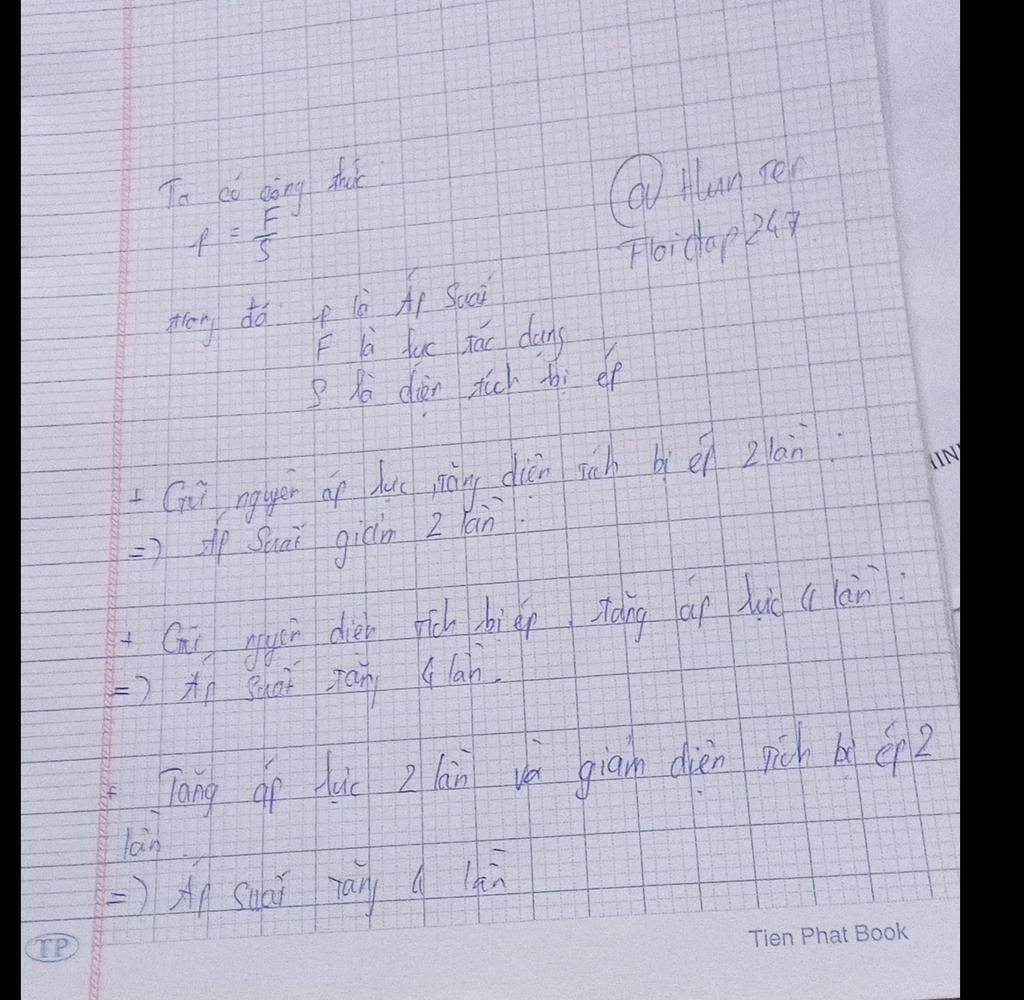 Ta có công thức:
@ Hun ter
p = F/S
Hoidap247.
trong đó: p là Áp Suất
F là lực tác dụng
S là diện tích bị ép
+ Giữ nguyên áp lực, tăng diện tích bị ép 2 lần:
=> Áp Suất giảm 2 lần.
+ Giữ nguyên diện tích bị ép, tăng áp lực 4 lần:
=> Áp Suất tăng 4 lần.
+ Tăng áp lực 2 lần và giảm diện tích bị ép 2
lần.
=> Áp suất tăng 4 lần
TP
Tien Phat Book